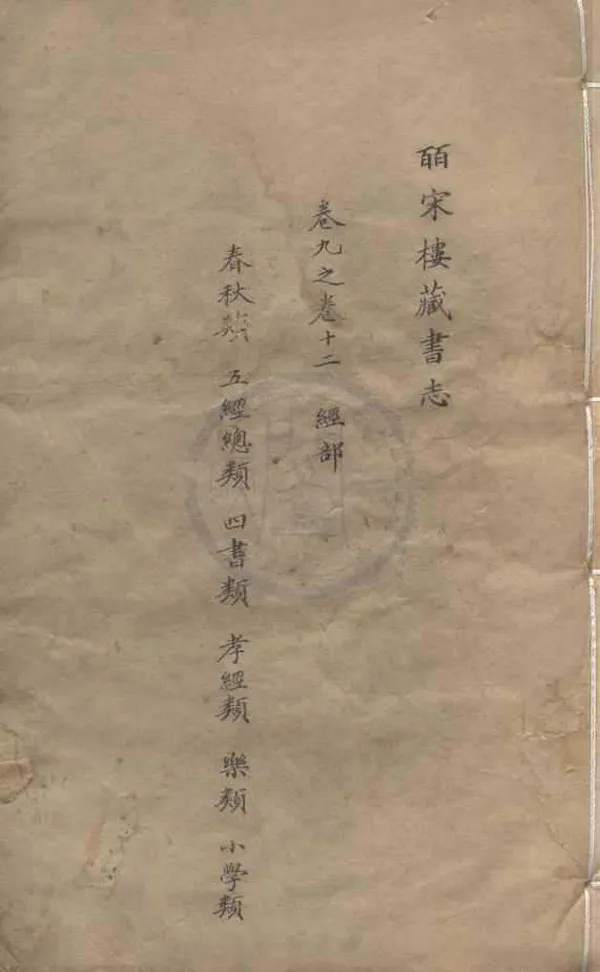 皕宋樓藏書志
卷九之卷十二 經部
春秋類 五經總類 四書類 孝經類 樂類 小學類